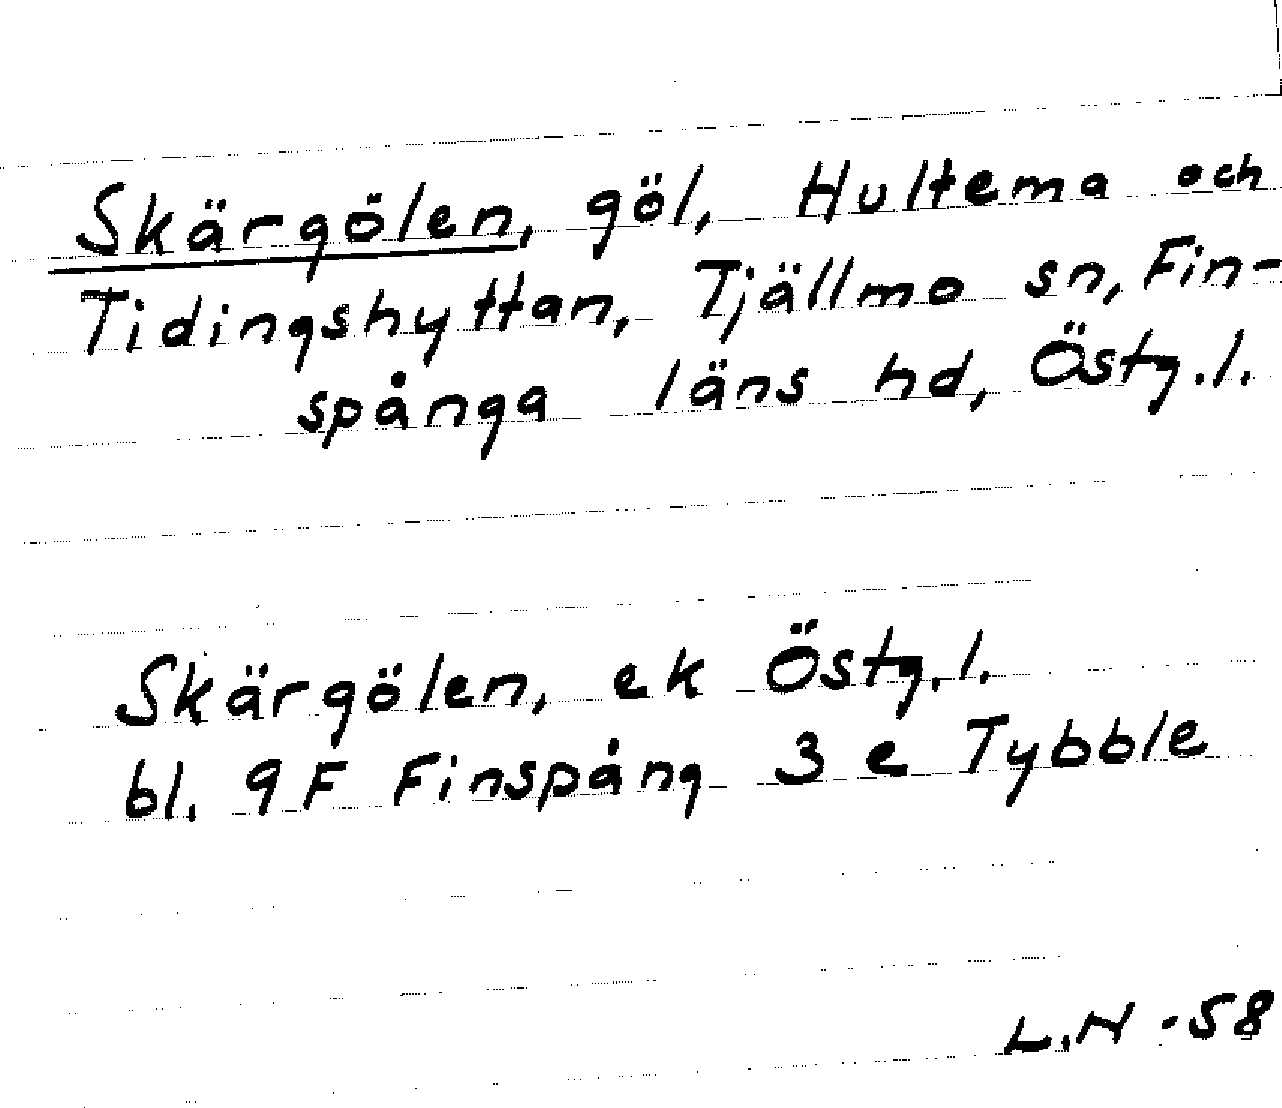 Skärgölen, göl, Hultema och
Tidingshyttan, Tjällmo sn, Fin-
spånga läns hd, Östg.l.
Skärgölen, ek Östg.l.
bl. 9F Finspång 3 e Tybble
L.N -58